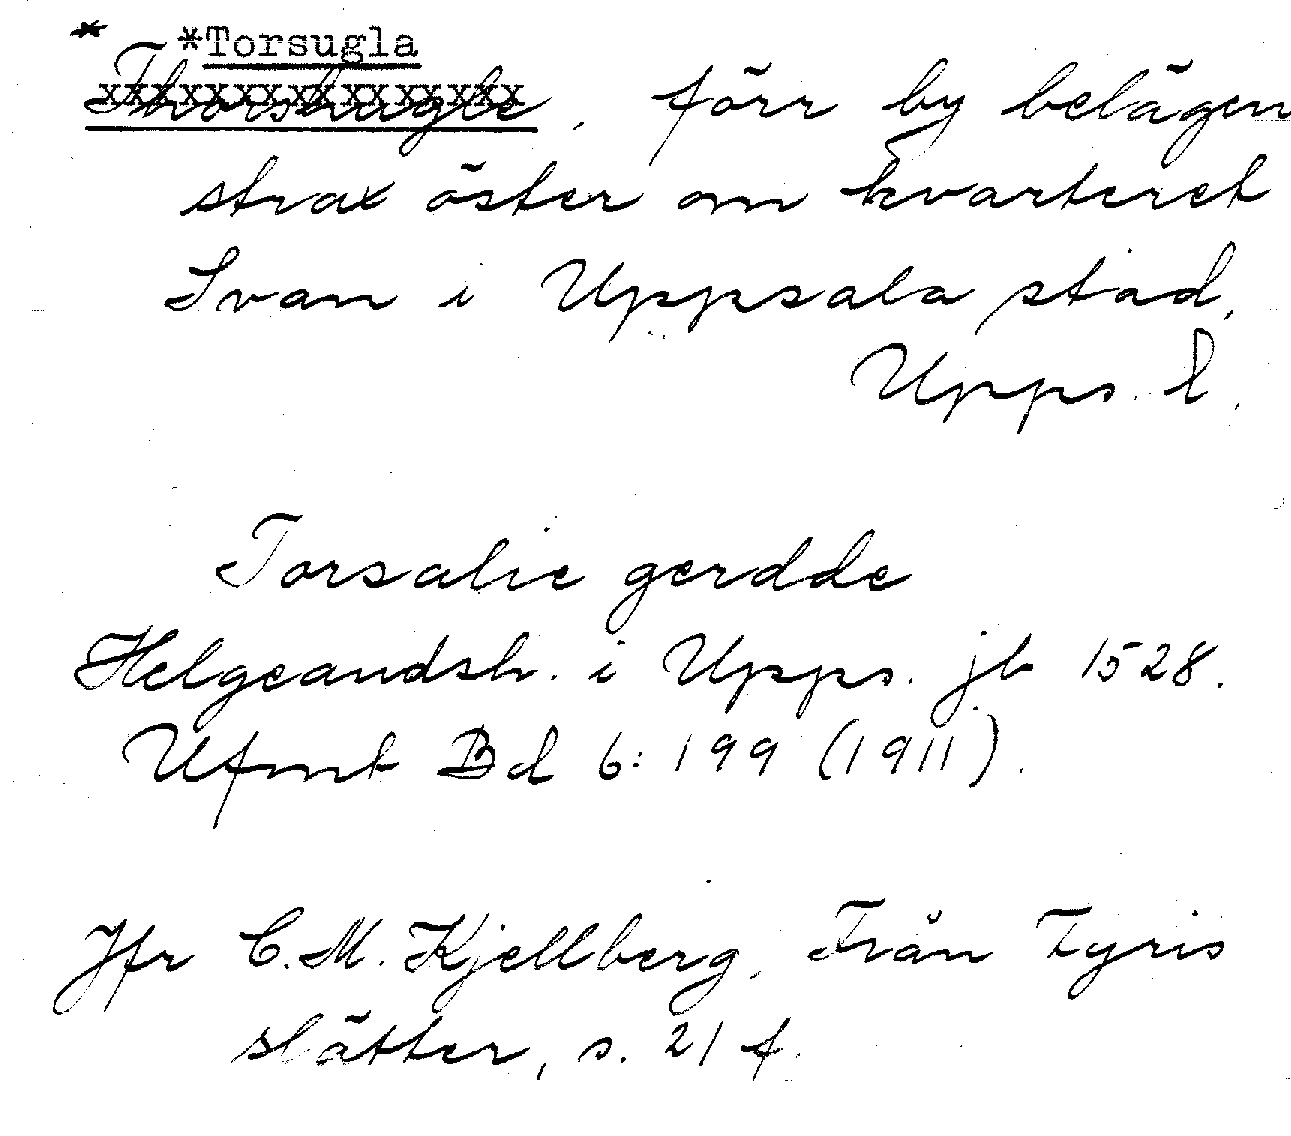 *Torsugla
* Thorshugle, förr by belägen
strax öster om kvarteret
Ivan i Uppsala stad,
Upps. l.
Torsalie gerdde
Helgeandsh. i Upps. jb 1528.
Ufmt Bd 6:199 (1911).
Jfr C.M. Kjellberg, Från Fyris
slätter, s. 21 f.